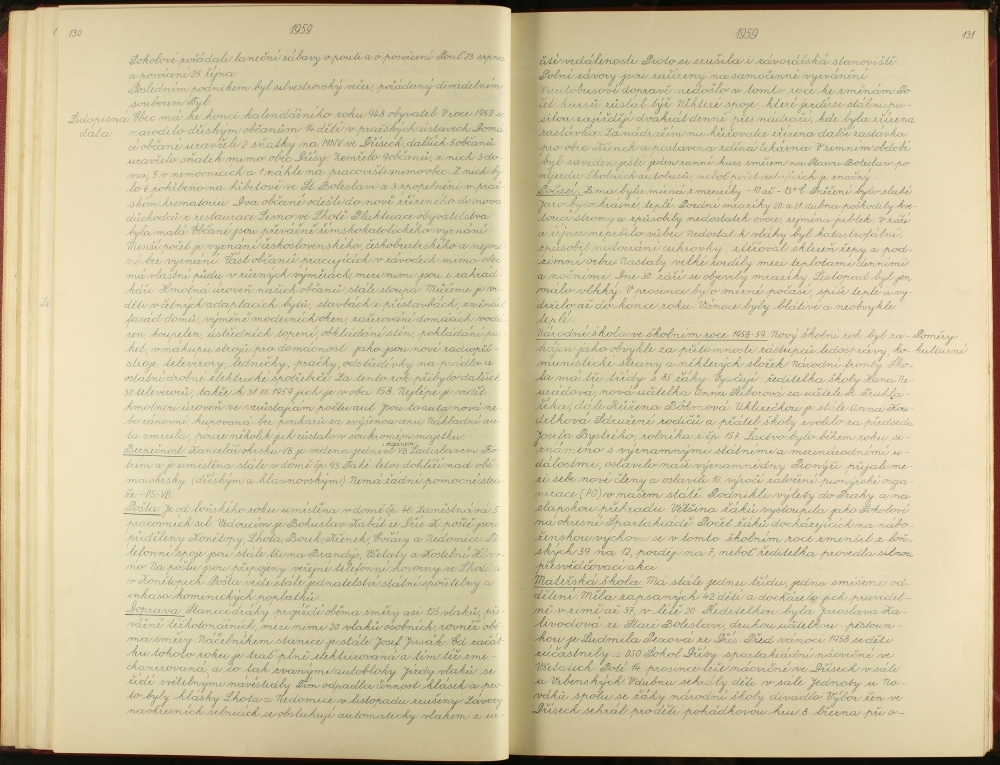 130
1959
Sokolové pořádali taneční zábavy o pouti a o posvícení. Pouť 23. srpna
a posvícení 25. října.
Posledním podnikem byl silvestrovský večer, pořádaný divadelním
souborem Tyl.
Lidopisná data
Obec má ke konci kalendářního roku 948 obyvatel. V roce 1959 se
narodilo dříským občanům 14 dětí v pražských ústavech. Doma-
cí občané uzavřeli 2 sňatky na MNV ve Dřísech, dalších 5 občanů
uzavřelo sňatek mimo obec Dřísy. Zemřelo 9 občanů, z nich 3 do-
ma, 5 v nemocnicích a 1 náhle na pracovišti mimo obec. Z nich by-
lo 6 pohřbeno na hřbitově ve St. Boleslavi a 3 zpopelněni v praž-
ském krematoriu. Dva občané odešli do nově zřízeného domova
důchodců z restaurace Lesno ve Lhotě. Fluktuace obyvatelstva
byla malá. Občané jsou převážně římskokatolického vyznání.
Menší počet je vyznání československého, českobratrského a nejme-
ně bez vyznání. Část občanů pracujících v závodech mimo obec
má vlastní půdu v různých výměrách, mezi nimi jsou i zahrad-
káři. Hmotná úroveň našich občanů stále stoupá. Můžeme je vi-
děti v četných adaptacích bytů, stavbách i přístavbách, změnách
fasád domů, výměně moderních oken, zařizování domácích vodá-
ren, koupelen, ústředních topení, obkládání stěn, pokládání par-
ket, v nákupu strojů pro domácnost, jako jsou nové radiopří-
stroje, televizory, ledničky, pračky, odstředivky na prádlo a
ostatní drobné elektrické spotřebiče. Za tento rok přibylo dalších
30 televizorů, takže k 31. XII. 1959 jich je v obci 158. Nejlépe je vidět
hmotnou úroveň ve vzrůstajícím počtu aut. Jsou to auta nová ne-
bo zánovní, kupovaná bez poukazu za zvýšenou cenu. Nákladní au-
ta zmizela, pouze několik jich zůstalo v soukromém majetku.
Bezpečnost. Kancelář okrsku VB je vedena jedním VB Ladislavem
a je umístěna stále v domě čp. 93. Také letos dohlíží nad obě-
ma okrsky (dříským a hlavnovským). Nemá řádnou pomocné strá-
že - PS-VB.
Pošta. Je od loňského roku umístěna v domě čp. 46. Zaměstnává 5
pracovních sil. Vedoucím je Bohuslav Kabát ze Dřís. K poště jsou
přiděleny Konětopy, Lhota, Borek, Křenek, Ovčáry a Nedomice. Te-
lefonní spoje jsou stále tři na Brandýs, Všetaty a Kostelní Hlav-
no. Na poštu jsou připojeny veřejné telefonní hovorny ve Lhotě a
v Konětopech. Pošta vede stále jednatelství státní spořitelny a
inkaso komunických poplatků.
Doprava. Stanicí dráhy projíždí oběma směry asi 125 vlaků, pře-
vážně těžkotonážních, mezi nimi 20 vlaků osobních, rovněž obě-
ma směry. Náčelníkem stanice je stále Josef Jusák. Od začát-
ku tohoto roku je trať plně elektrisovaná a tím též zme-
chanizovaná, a to tak zvanými autobloky. Jízdy vlaků se
řídí světelnými návěstidly. Tím odpadla činnost hlásek a pro-
to byly hlásky Lhota a Nedomice v listopadu zrušeny. Závory
na okresních silnicích se obsluhují automaticky vlakem z ur-
1959
131
čité vzdálenosti. Proto se zrušila i závorářská stanoviště.
Polní závory jsou zařízeny na samočinné vyzvánění.
V autobusové dopravě nedošlo v tomto roce ke změnám. Po-
čet kursů zůstal týž. Některé spoje, které jezdí se stálou po-
silou zajíždějí dvakrát denně přes nádraží, kde byla zřízena
zastávka. Za nádražím na křižovatce zřízena další zastávka
pro obec Křenek a postavena zděná čekárna. V zimním období
byl zaveden ještě jeden ranní kurs směrem na Starou Boleslav po
odjezdu školních autobusů, neboť počet cestujících je značný.
Počasí. Zima byla mírná s mrazíky -10 až -13° C. Sněžení bylo slabé.
Jaro bylo krásné, teplé. Pozdní mrazíky 20. a 21. dubna poškodily kve-
toucí stromy a způsobily nedostatek ovoce, zejména jablek. V září
a říjnu nepršelo vůbec. Nedostatek vláhy byl katastrofální,
způsobil nedozrání cukrovky, ztěžoval sklizeň řepy a pod-
zimní orbu. Nastaly velké rozdíly mezi teplotami denními
a nočními. Dne 30. září se objevily mrazíky. Listopad byl jen
málo vlhký. V prosinci bylo mírné počasí, spíše teplé a vy-
drželo až do konce roku. Vánoce byly blátivé a neobvykle
teplé.
Poměry kulturní
Národní škola ve školním roce 1958-59. Nový školní rok byl za-
hájen jako obvykle za přítomnosti zástupců lidosprávy, ko-
munistické strany a některých složek Národní fronty. Ško-
la má tři třídy s 85 žáky. Vyučují: ředitelka školy Hana Ne-
uradová, nová učitelka Anna Píborová za učitele K. Truhlá-
říka, dále Růžena Böhmová. Uklízečkou je stále Anna Kou-
delková. Sdružení rodičů a přátel školy zvolilo za předsedu
Josefa Bystřického, rolníka z čp. 157. Žactvo bylo během roku se-
známeno s významnými státními a mezinárodními u-
dálostmi, oslavilo naše významné dny. Pionýři přijali me-
zi sebe nové členy a oslavili 10. výročí založení pionýrské orga-
nizace (PO) v našem státě. Podnikli výlety do Prahy a na
slapskou přehradu. Většina žáků vystoupila jako Sokolové
na okresní Spartakiádě. Počet žáků docházejících na nábo-
ženskou výchovu se v tomto školním roce zmenšil z loň-
ských 39 na 12, později na 7, neboť ředitelka provedla silnou
přesvědčovací akci.
Mateřská škola. Má stále jednu třídu, jedno smíšené od-
dělení. Měla zapsaných 42 dětí a docházelo jich pravidel-
ně v zimě až 37, v létě 20. Ředitelkou byla Jaroslava Ka-
livodová ze Staré Boleslavi, druhou učitelkou - pěstoun-
kou je Ludmila Pexová ze Dřís. Před vánoci 1958 se děti
zúčastnily s DSO Sokol Dřísy spartakiádní nácvičné ve
Všetatech. Poté 14. prosince též nácvičné ve Dřísech v sále
u Vrbenských. V dubnu sehrály děti v sále Jednoty u No-
váků spolu se žáky národní školy divadlo. Výbor žen ve
Dřísech sehrál pro děti pohádkovou hru 8. března při o-